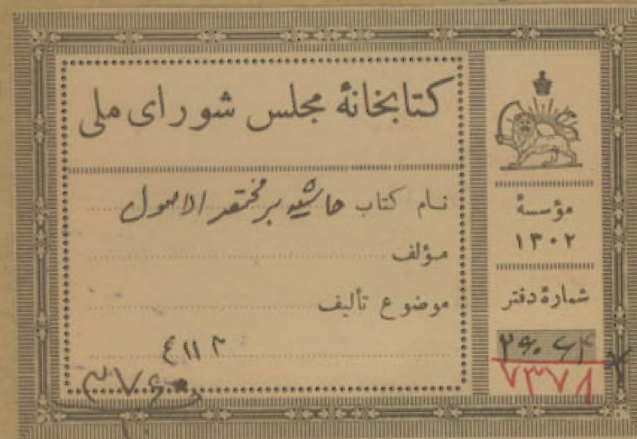 کتابخانهٔ مجلس شورای ملی
نام کتاب حاشیه بر مختصر الاصول
مؤلف
موضوع تألیف
٤١١٢
مؤسسهٔ
١٣٠٢
شمارهٔ دفتر
٧٣٧٨